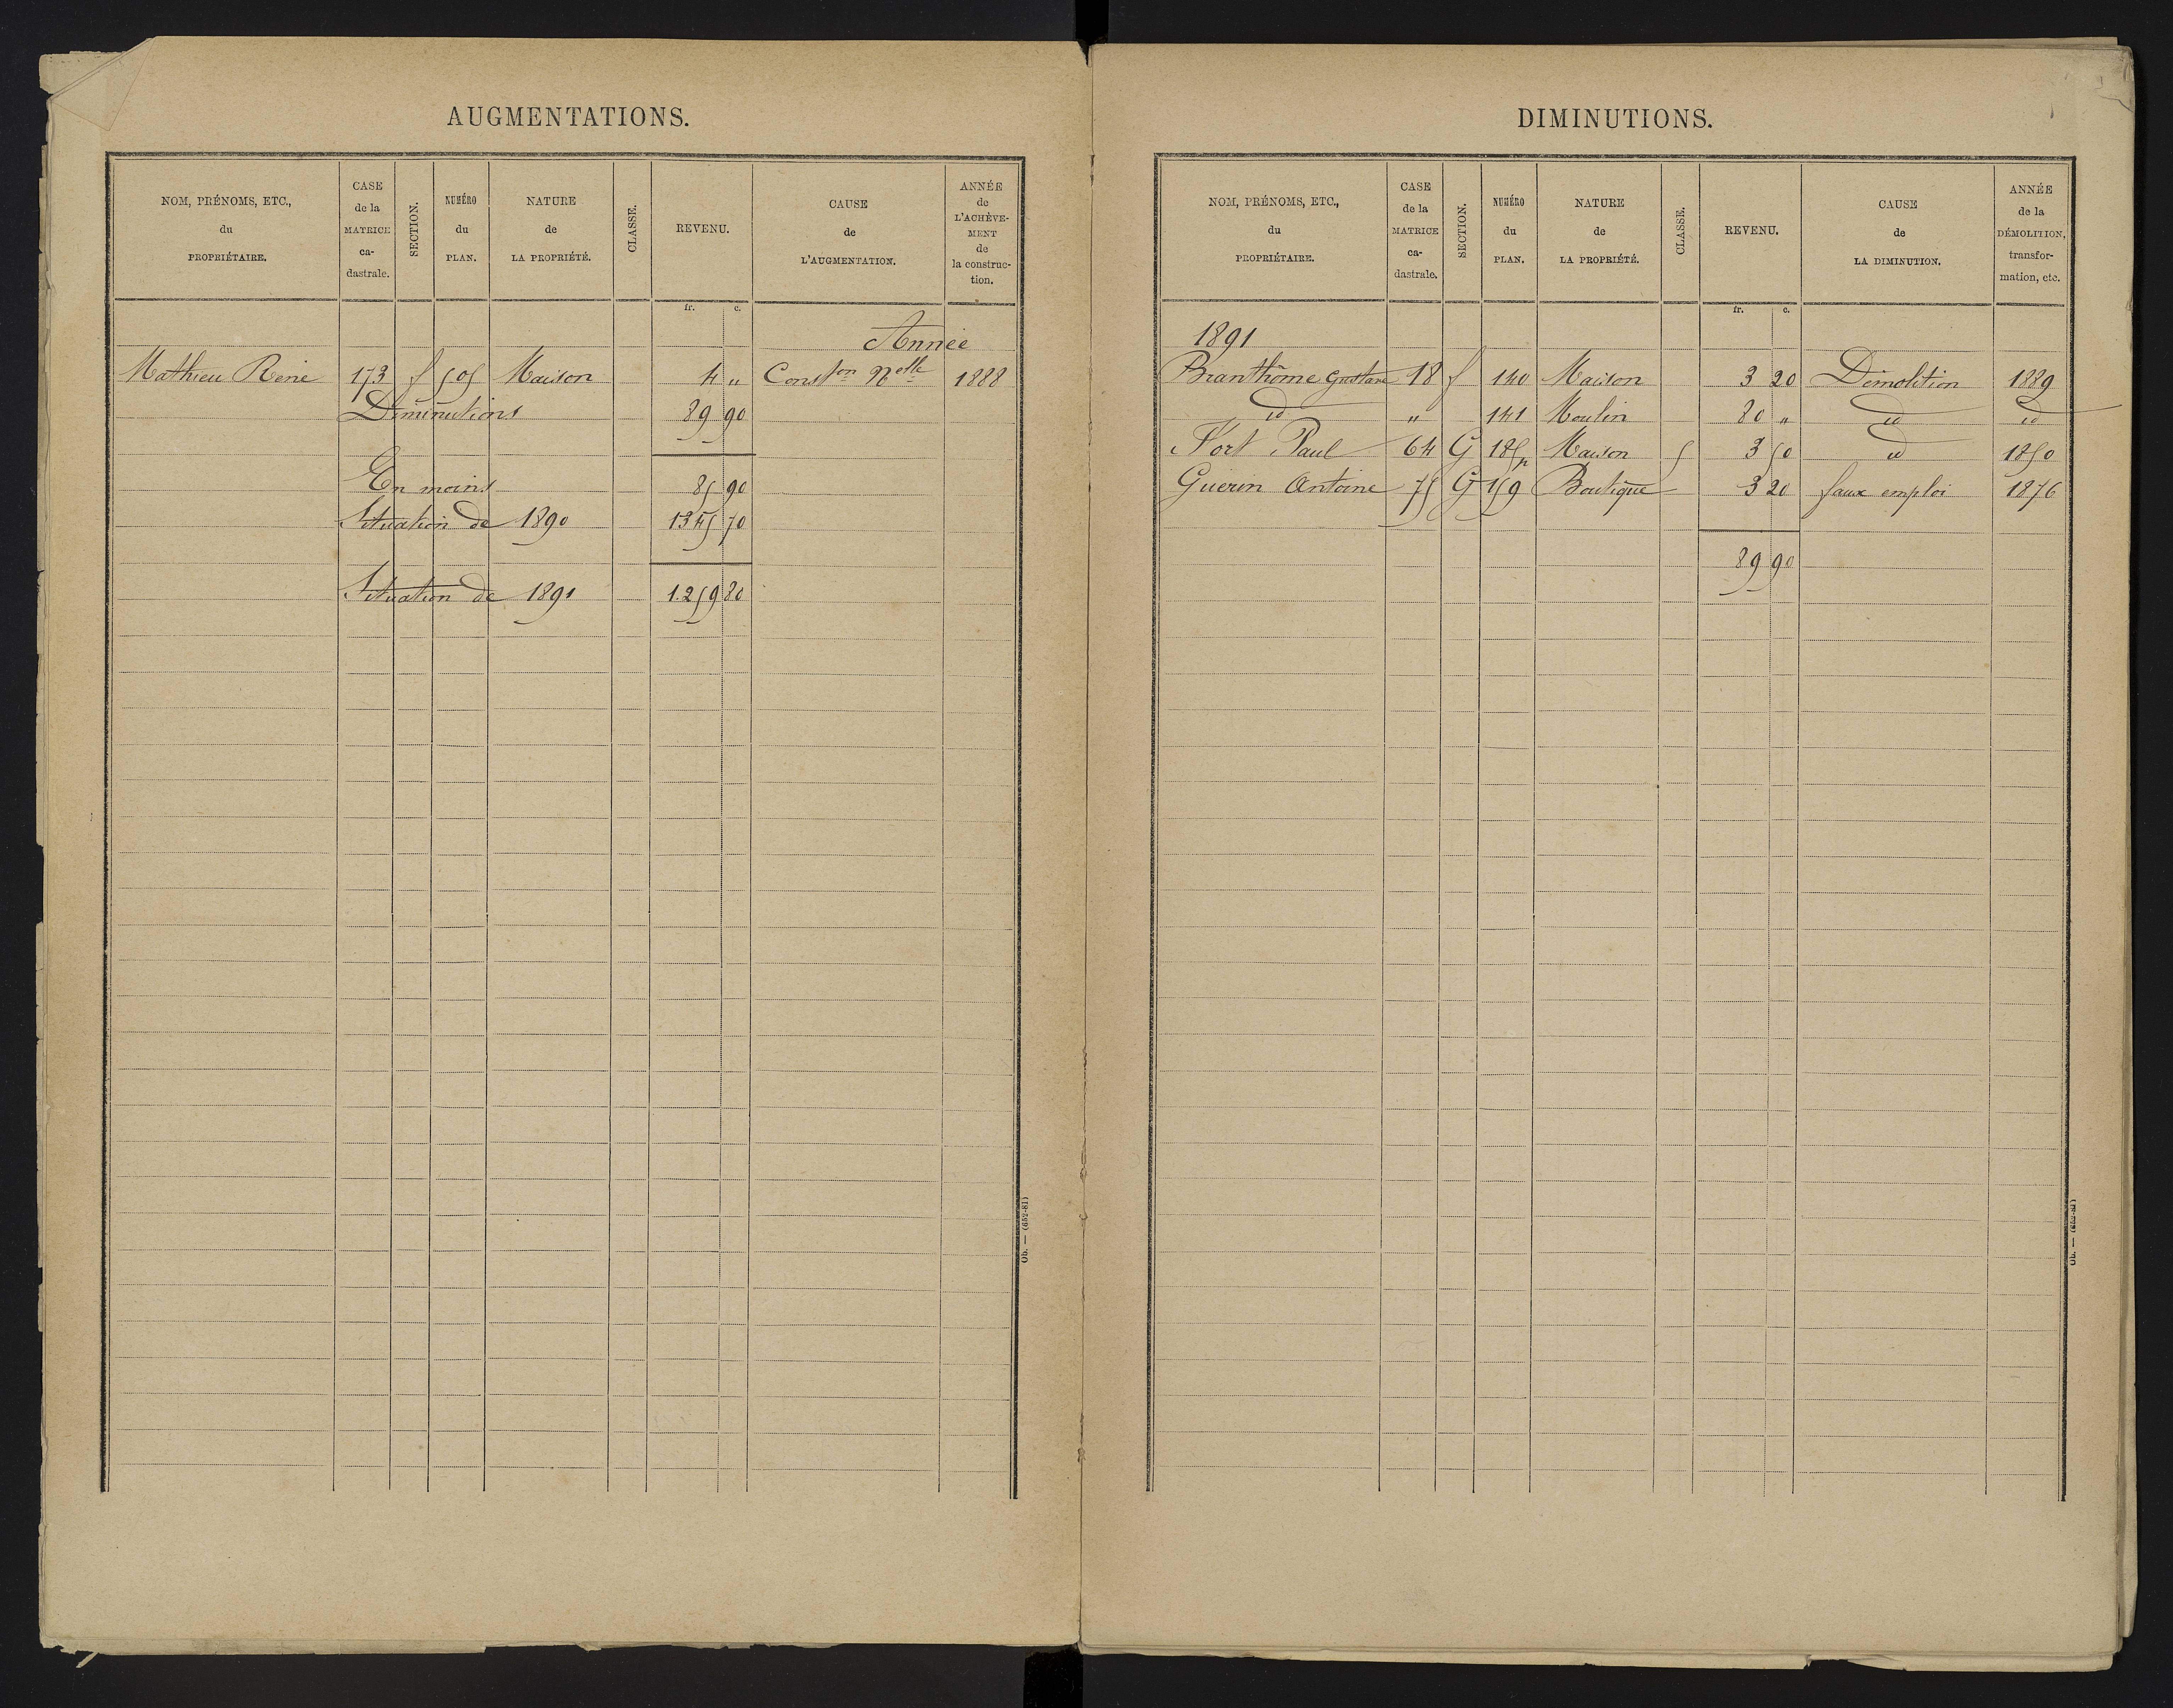 AUGMENTATIONS.
NOM, PRÉNOMS, ETC., du PROPRIÉTAIRE. CASE de la MATRICE ca-dastrale. SECTION. NUMÉRO du PLAN. NATURE de LA PROPRIÉTÉ. CLASSE. REVENU. CAUSE de L'AUGMENTATION. ANNÉE de L'ACHÈVE-MENT de la construc-tion.
fr. c.
Année
Mathieu René 173 f 505 Maison 4 „ Const.on N.elle 1888
Diminutions 89 90
En moins 85 90
Situation de 1890 1345 70
Situation de 1891 1.259 80
Ob. — (652-81)
DIMINUTIONS.
NOM, PRÉNOMS, ETC., du PROPRIÉTAIRE. CASE de la MATRICE ca-dastrale. SECTION. NUMÉRO du PLAN. NATURE de LA PROPRIÉTÉ. CLASSE. REVENU. CAUSE de LA DIMINUTION. ANNÉE de la DÉMOLITION, transfor-mation, etc.
fr. c.
1891
Branthôme Gustave 18 f 140 Maison 3 20 Démolition 1889
id „ 141 Moulin 80 „ id id
Fort Paul 64 G 185p Maison 5 3 50 id 1850
Guérin Antoine 75 G 159 Boutique 3 20 faux emploi 1876
89 90
Ob. — (652-81)